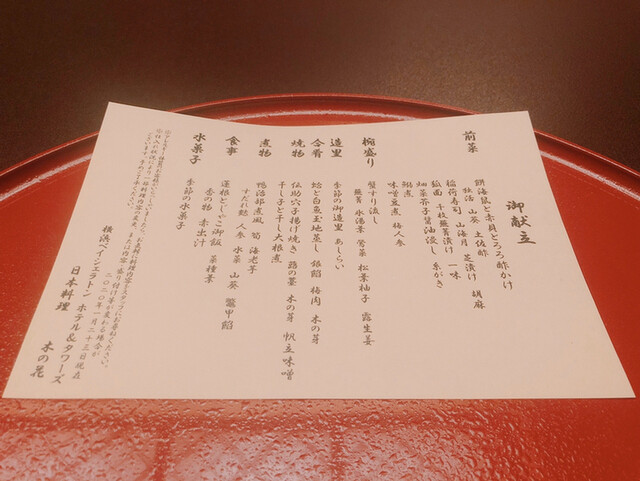 御献立
前菜
海鼠と赤貝とろろ酢かけ
独活 山葵 土佐酢
稲荷寿司 山海月 芝漬け 胡麻
千枚蕪菁漬け 一味
畑菜芥子醤油浸し 糸がき
味噌豆煮 梅人参
椀盛り
蟹すり流し
蕪菁 水湯葉 菅菜 松葉柚子 露生姜
造里
季節の御造里 あしらい
合肴
蛤と白魚玉地蒸し 銀餡 梅肉 木の芽
焼物
仙助穴子揚げ焼き 蕗の薹 木の芽 帆立味噌
干し子と干し大根煮
煮物
鴨治部煮風 筍 海老芋
すだれ麩 人参 水菜 山葵 鼈甲餡
食事
蓮根とじゃこ御飯
香の物 赤出汁 菜種葉
水菓子
季節の水菓子
二〇二〇年一月二十三日現在
横浜ベイシェラトン ホテル&タワーズ
日本料理 木の花